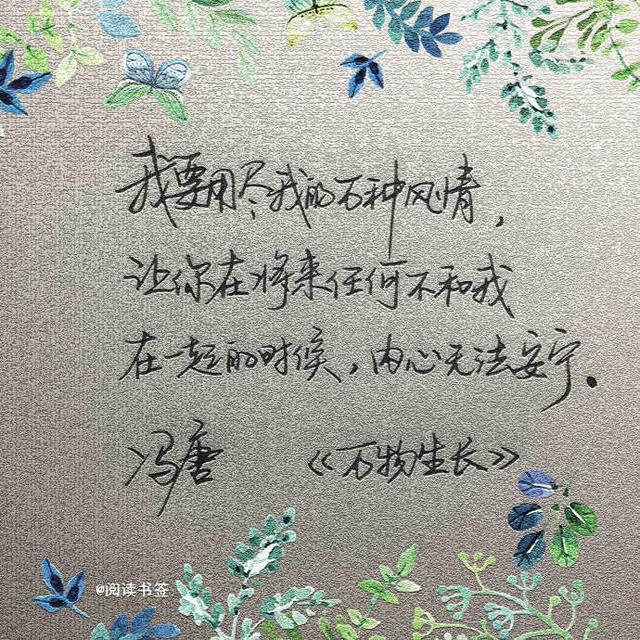 我要用尽我的万种风情，
让你在将来任何不和我
在一起的时候，内心无法安宁。
冯唐 《万物生长》
@阅读书签